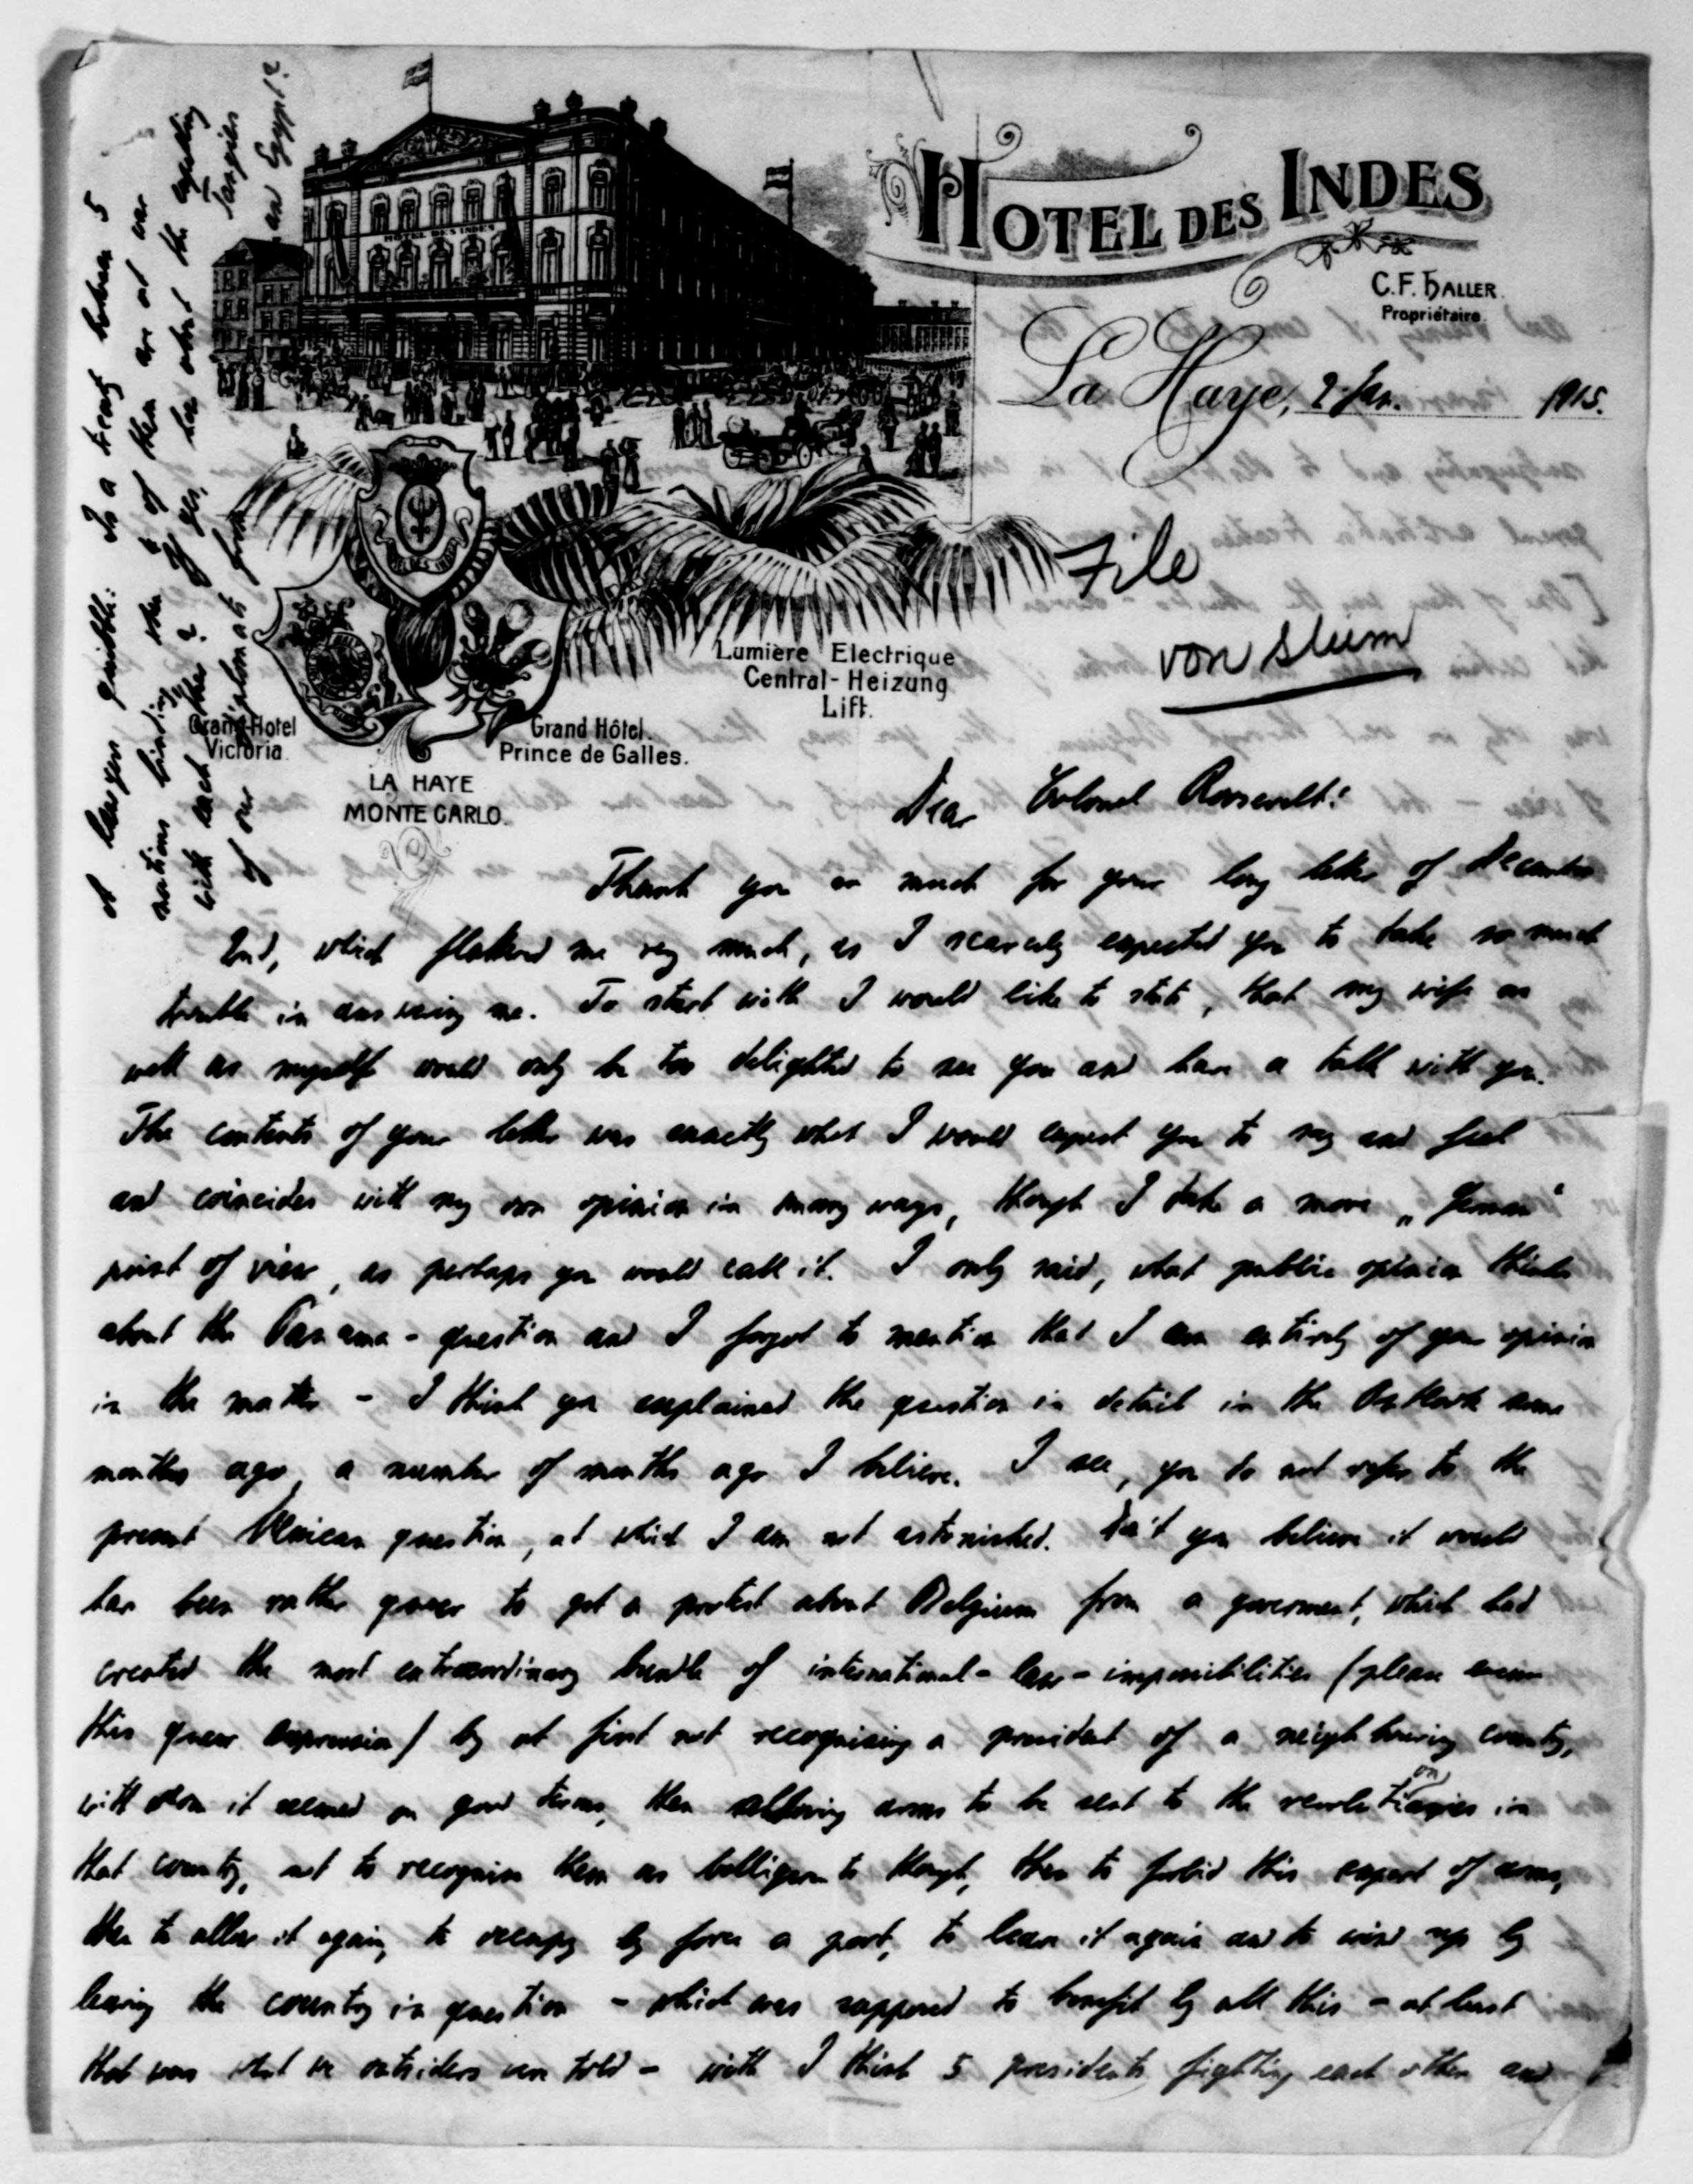 HOTEL DES INDES
C.F. HALLER.
Propriétaire.
La Haye, 2. Jan. 1915.
HOTEL DES INDES
File
von Stum
Lumière Electrique
Central-Heizung
Lift.
Grand Hotel
Victoria
Grand Hôtel.
Prince de Galles.
LA HAYE
MONTE CARLO.
Dear Colonel Roosevelt:
Thank you so much for your long letter of December
2nd, which flattered me very much, as I scarcely expected you to take so much
trouble in answering me. To start with I would like to state, that my wife as
well as myself would only be too delighted to see you and have a talk with you.
The contents of your letter was exactly what I would expect you to say and feel
and coincides with my own opinion in many ways, though I take a more „German“
point of view, as perhaps you would call it. I only said, what public opinion thinks
about the Panama-question and I forgot to mention that I am entirely of your opinion
in the matter - I think you explained the question in detail in the Outlook some
months ago, a number of months ago I believe. I see, you do not refer to the
present Mexican question, at which I am not astonished. Don't you believe it would
have been rather queer to get a protest about Belgium from a goverment, which had
created the most extraordinary bundle of international-law-impossibilities (please excuse
this queer expression) by at first not recognising a president of a neighbouring country,
with whom it seemed on good terms, then allowing arms to be sent to the revolutionaries in
that country, not to recognise them as belligerents though, then to forbid this export of arms,
then to allow it again, to occupy by force a port, to leave it again and to wind up by
leaving the country in question - which was supposed to benefit by all this - at least
that was what we outsiders were told - with I think 5 presidents fighting each other and
at lawyers quibble: Is a treaty between 5
nations binding, when 4 of them are at war
with each other? If yes, how about the
of our diplomats from Tangier
and Egypt?